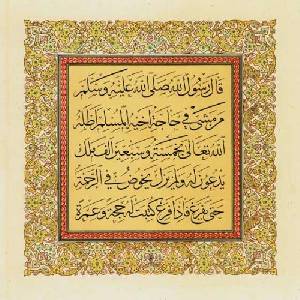 قال رسول الله صلى الله عليه وسلم
من مشى في حاجة أخيه المسلم أظله
الله تعالى بخمسة وسبعين ألف ملك
يدعون له ولم يزل يخوض في الرحمة
حتى يفرغ فإذا فرغ كتبت له حجة وعمرة